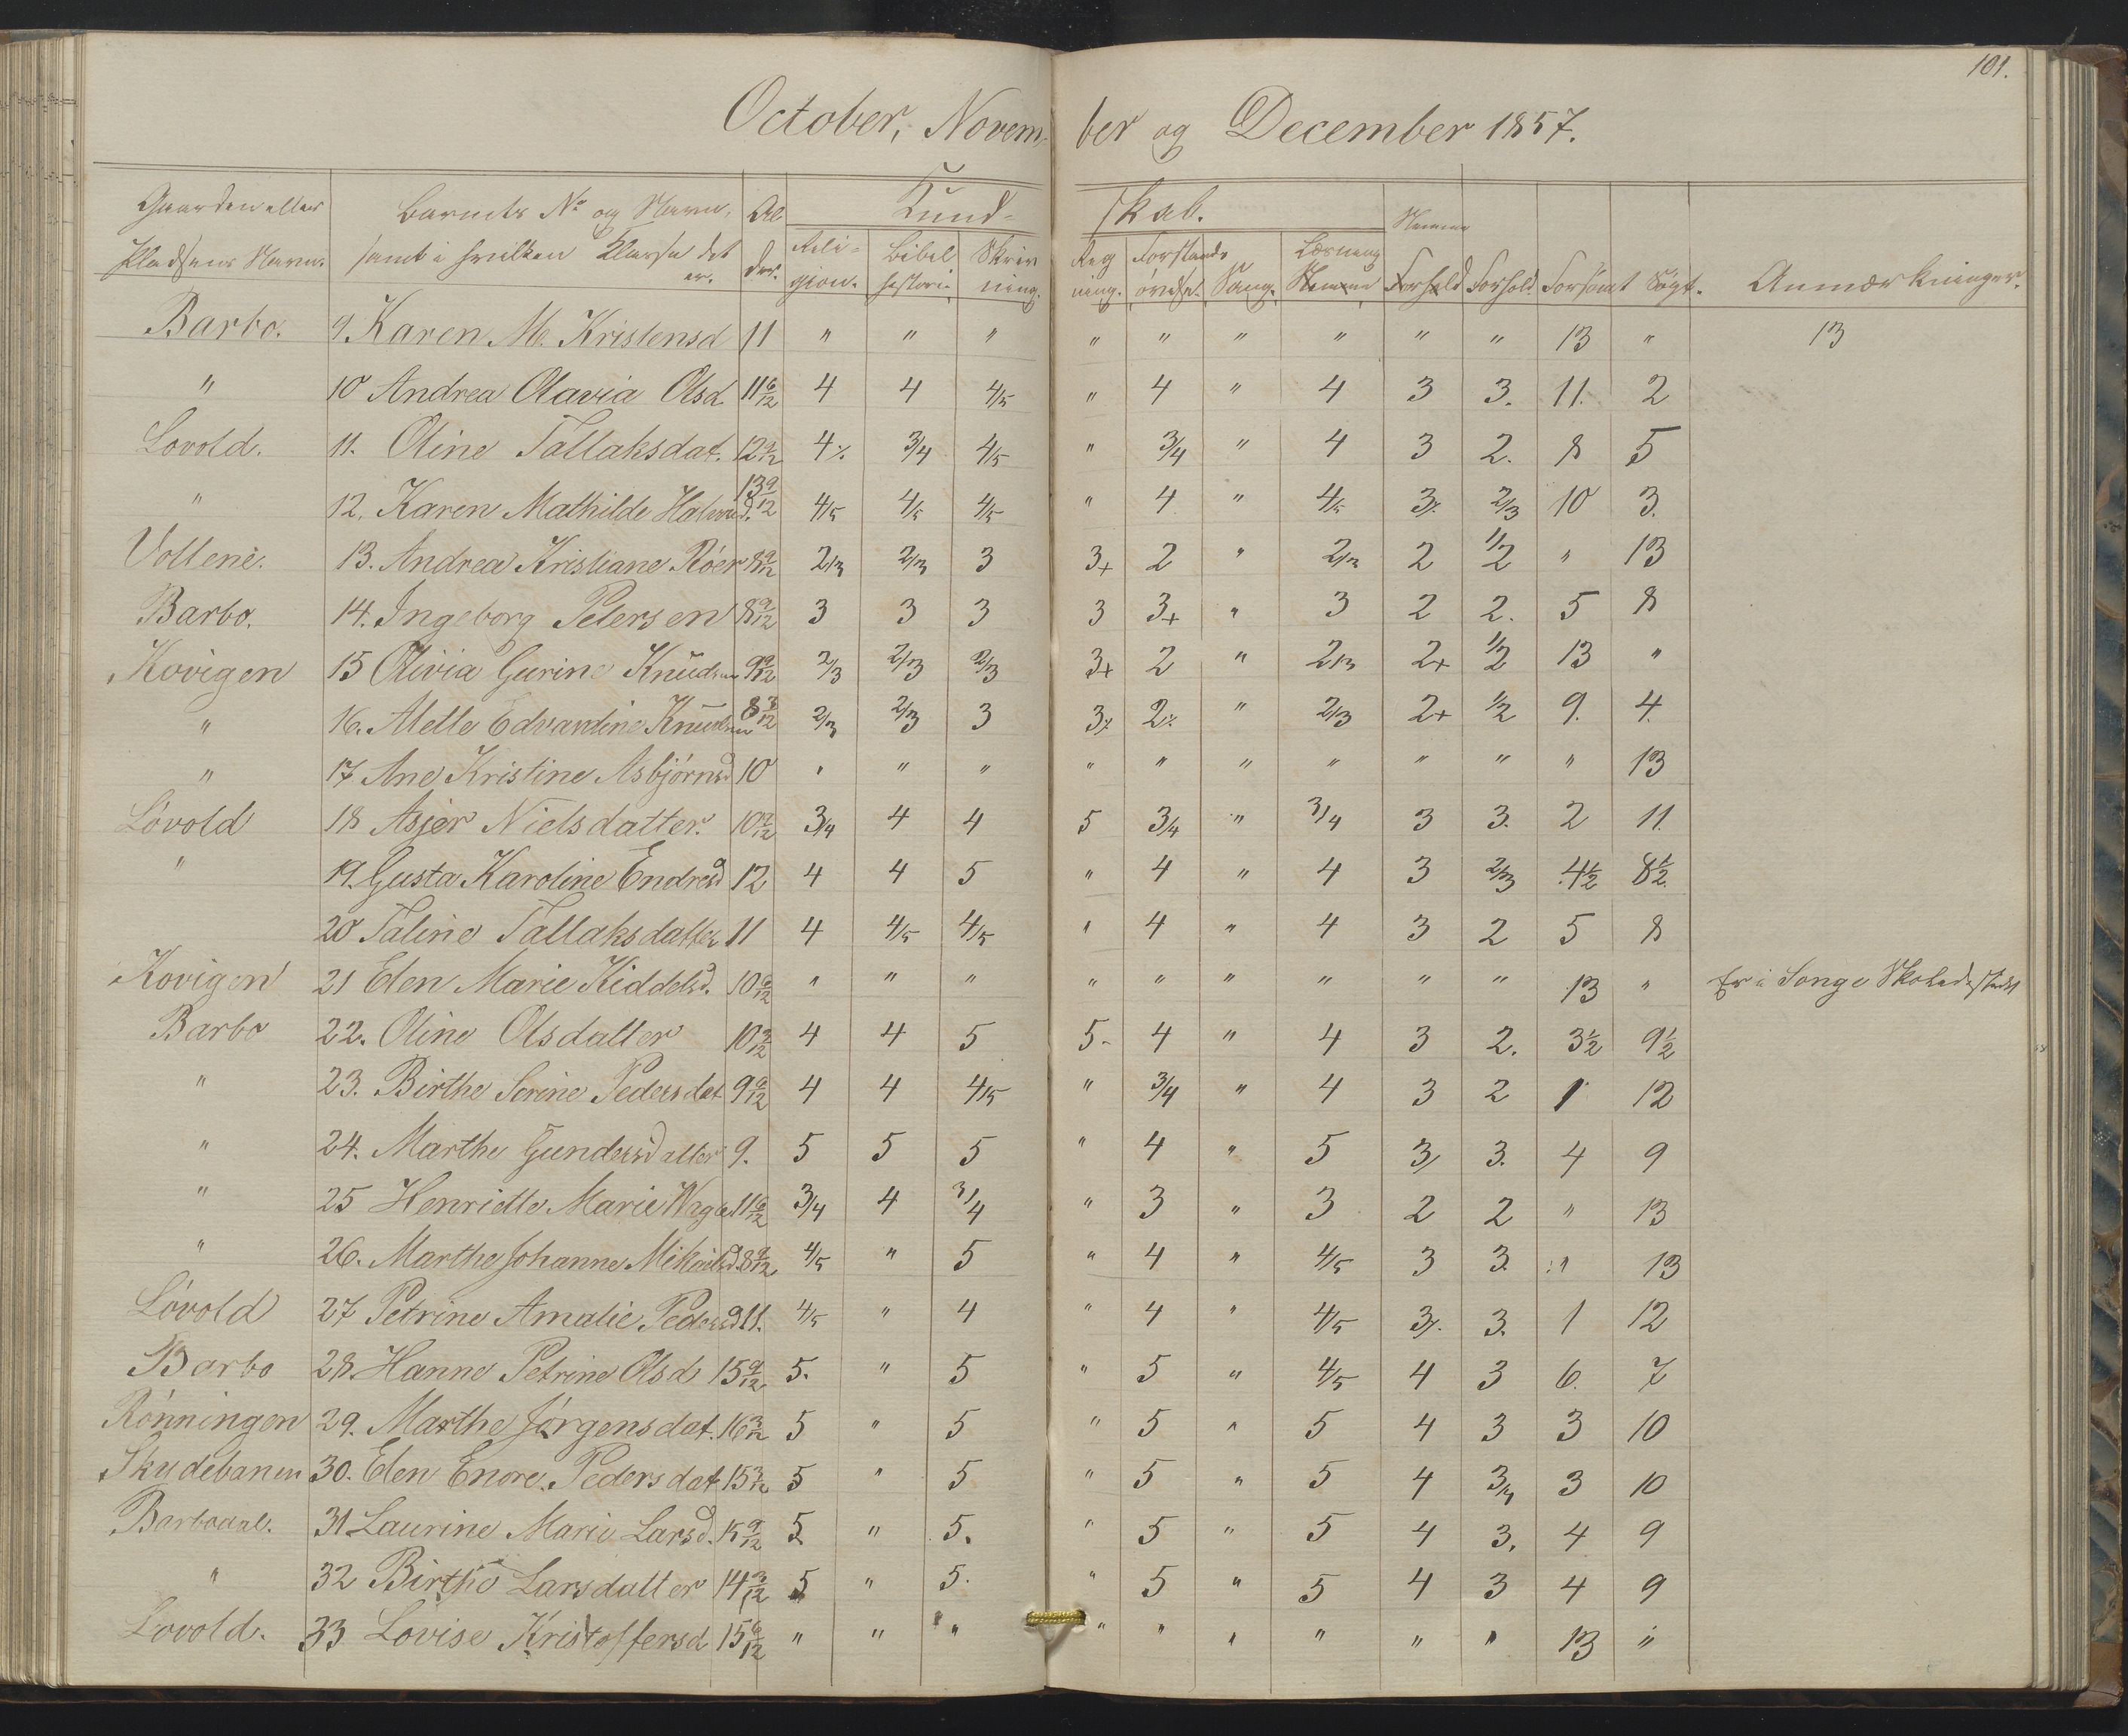 101.
October, Novem- ber og December 1857.
Gaarden eller Pladsens Navn. Barnets No og Navn, samt i hvilken Klasse det er. Alder. Kund- skab. Religion. Bibelhistorie. Skrivning. Regning. Forstandsøvelse. Sang. Læsning Nemme Forhold Forhold. Forsømt Søgt. Anmærkninger.
Barbo. 9. Karen M. Kristensd 11 " " " " " " " " " 13 " 13
" 10 Andrea Olavia Olsd. 11 6/12 4 4 4/5 " 4 " 4 3 3. 11. 2
Lovold. 11. Oline Tallaksdat. 12 9/12 4% 3/4 4/5 " 3/4 " 4 3 2. 8 5
" 12. Karen Mathilde Halvord. 13 9/12 4/5 4/5 4/5 " 4 " 4/5 3% 2/3 10 3.
Vollene. 13. Andrea Kristiane Röer 8 9/12 2/3 2/3 3 3+ 2 " 2/3 2 1/2 " 13
Barbo. 14. Ingeborg Petersen 8 9/12 3 3 3 3 3+ " 3 2 2. 5 8
Kovigen 15 Olivia Gurine Knudsen 9 9/12 2/3 2/3 2/3 3+ 2 " 2/3 2+ 1/2 13 "
" 16. Melle Edvardine Knudsen 8 3/12 2/3 2/3 3 3% 2% " 2/3 2+ 1/2 9. 4.
" 17. Ane Kristine Asbjörnsd 10 " " " " " " " " " " 13
Lövold 18 Asjer Nielsdatter. 10 9/12 3/4 4 4 5 3/4 " 3/4 3 3. 2 11.
" 19. Gusta Karoline Endresd 12 4 4 5 " 4 " 4 3 2/3 4 1/2 8 1/2
20 Taline Tallaksdatter 11 4 4/5 4/5 " 4 " 4 3 2 5 8
Kovigen 21 Elen Marie Kiddelsd. 10 9/12 " " " " " " " " " 13 " Er i Songe
Barbo 22. Oline Olsdatter 10 3/12 4 4 5 5- 4 " 4 3 2. 3 1/2 9 1/2
" 23. Birthe Serine Pedersdat 9 9/12 4 4 4/5 " 3/4 " 4 3 2 1 12
" 24. Marthe Gundersdatter 9. 5 5 5 " 4 " 5 3/ 3. 4 9
" 25 Henriette Marie Wage 11 6/12 3/4 4 3/4 " 3 " 3 2 2 " 13
" 26. Marthe Johanne Mikaelsd. 8 9/12 4/5 " 5 " 4 " 4/5 3 3. " 13
Lövold 27 Petrine Amalie Pedersd 11. 4/5 " 4 " 4 " 4/5 3% 3. 1 12
Barbo 28. Hanne Petrine Olsd 15 9/12 5. " 5 " 5 " 4/5 4 3 6. 7
Rönningen 29. Marthe Jörgensdat. 16 3/12 5 " 5 " 5 " 5 4 3 3 10
Skudebanen 30. Elen Enore. Pedersdat 15 3/12 5 " 5 " 5 " 5 4 3/4 3 10
Barbodal. 31 Laurine Marie Larsd. 15 9/12 5. " 5. " 5 " 5 4 3. 4 9
" 32 Birthe Larsdatter 14 9/12 5 " 5. " 5 " 5 4 3 4 9
Lovold. 33 Lovise Kristoffersd 15 6/12 " " " " " " " " " 13 "